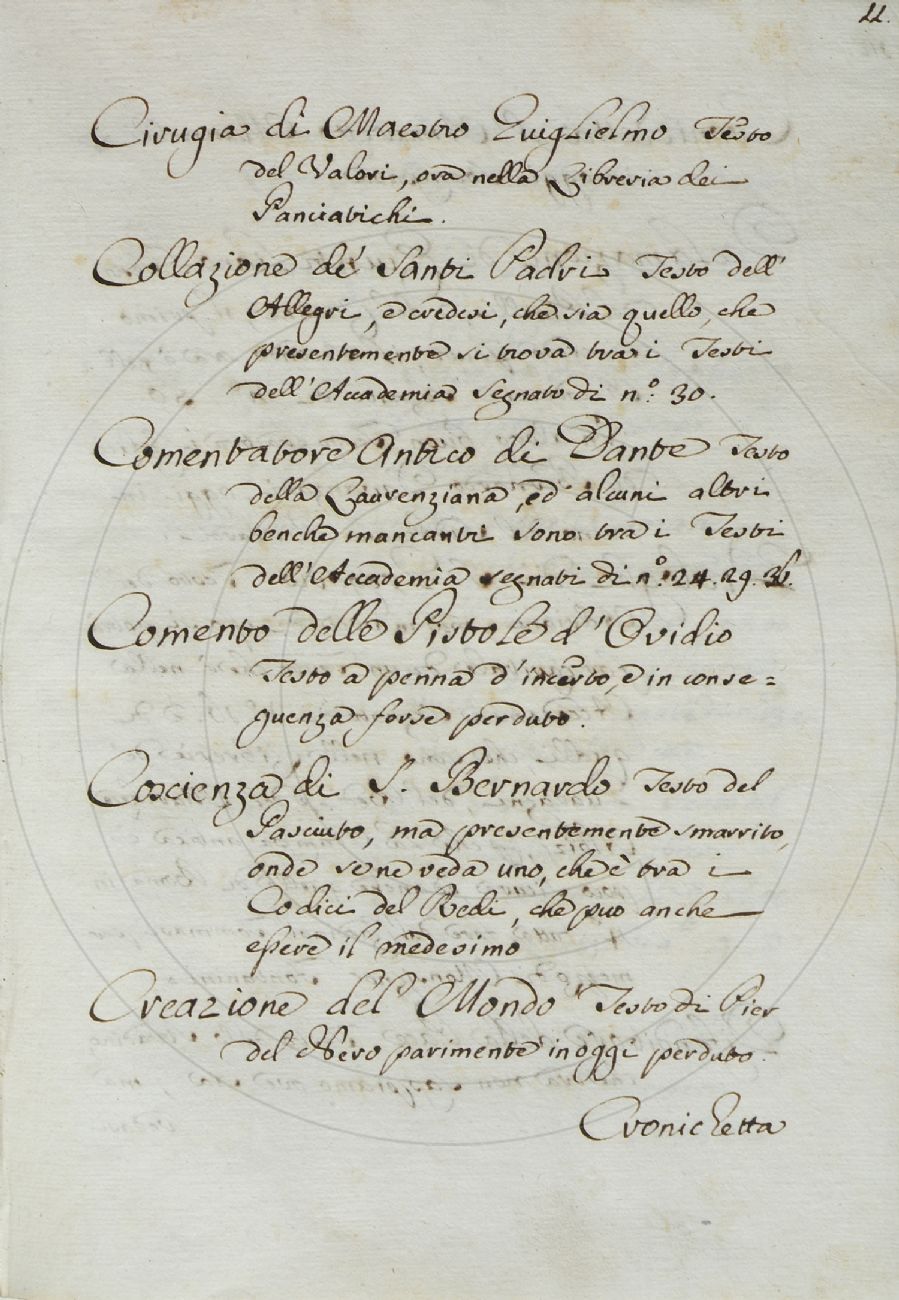 11.
Cirugia di Maestro Guiglielmo Testo
del Valori, ora nella Libreria dei
Panciatichi.
Collazione de' Santi Padri Testo dell'
Allegri, e credesi, che sia quello, che
presentemente si trova tra i Testi
dell'Accademia segnato di n.º 30.
Comentatore Antico di Dante Testo
della Laurenziana, ed alcuni altri
benche mancanti sono tra i Testi
dell'Accademia segnati di nº. 24. 29.
Comento delle Pistole d'Ovidio
Testo a penna d'incerto, e in conse=
guenza forse perduto.
Coscienza di S. Bernardo Testo del
Pasciuto, ma presentemente smarrito,
onde se ne veda uno, che è tra i
Codici del Redi, che puo anche
essere il medesimo
Creazione del Mondo Testo di Pier
del Nero parimente in oggi perduto.
Cronichetta